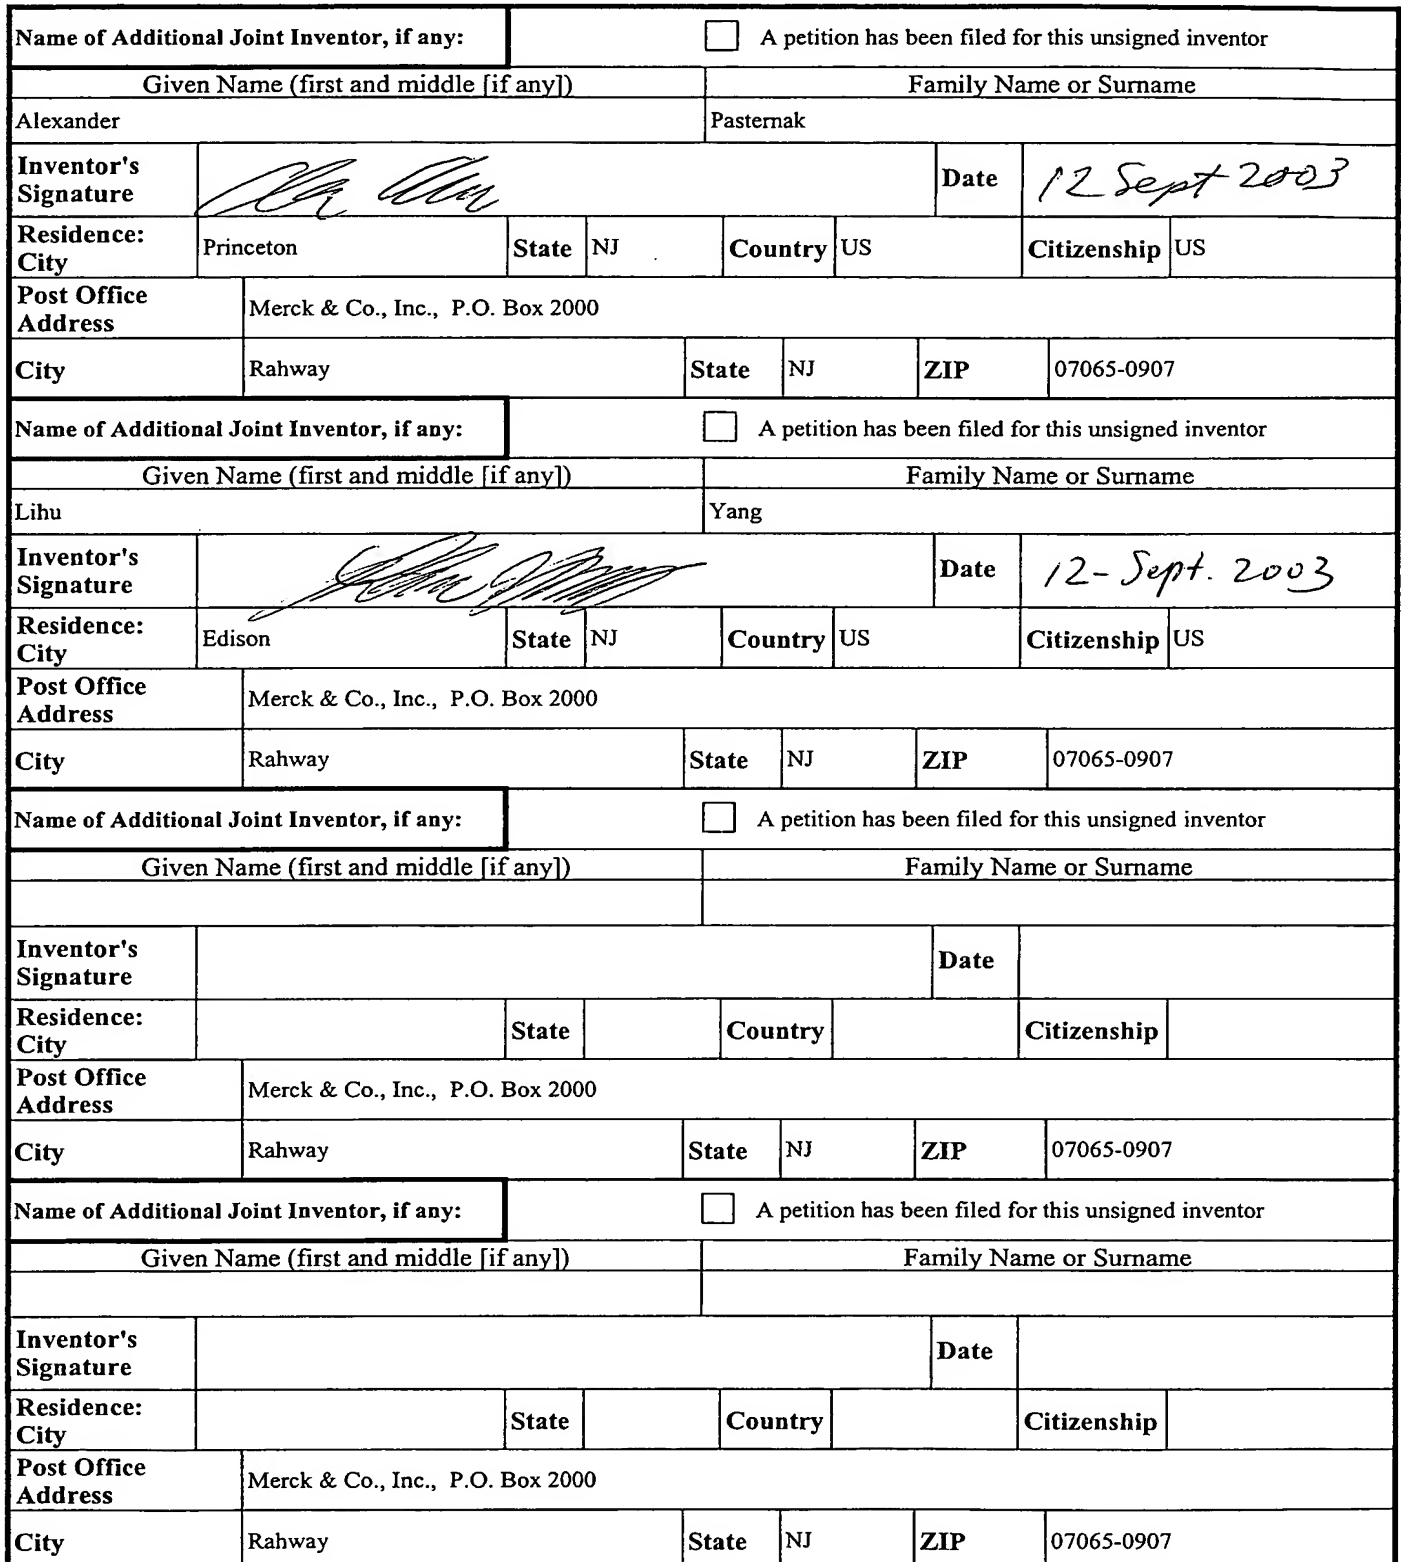 Name of Additional Joint Inventor, if any: A petition has been filed for this unsigned inventor
Given Name (first and middle [if any]) Family Name or Surname
Alexander Pasternak
Inventor's
Signature Date 12 Sept 2003
Residence:
City Princeton State NJ Country US Citizenship US
Post Office
Address Merck & Co., Inc., P.O. Box 2000
City Rahway State NJ ZIP 07065-0907
Name of Additional Joint Inventor, if any: A petition has been filed for this unsigned inventor
Given Name (first and middle [if any]) Family Name or Surname
Lihu Yang
Inventor's
Signature Date 12-Sept. 2003
Residence:
City Edison State NJ Country US Citizenship US
Post Office
Address Merck & Co., Inc., P.O. Box 2000
City Rahway State NJ ZIP 07065-0907
Name of Additional Joint Inventor, if any: A petition has been filed for this unsigned inventor
Given Name (first and middle [if any]) Family Name or Surname
Inventor's
Signature Date
Residence:
City State Country Citizenship
Post Office
Address Merck & Co., Inc., P.O. Box 2000
City Rahway State NJ ZIP 07065-0907
Name of Additional Joint Inventor, if any: A petition has been filed for this unsigned inventor
Given Name (first and middle [if any]) Family Name or Surname
Inventor's
Signature Date
Residence:
City State Country Citizenship
Post Office
Address Merck & Co., Inc., P.O. Box 2000
City Rahway State NJ ZIP 07065-0907